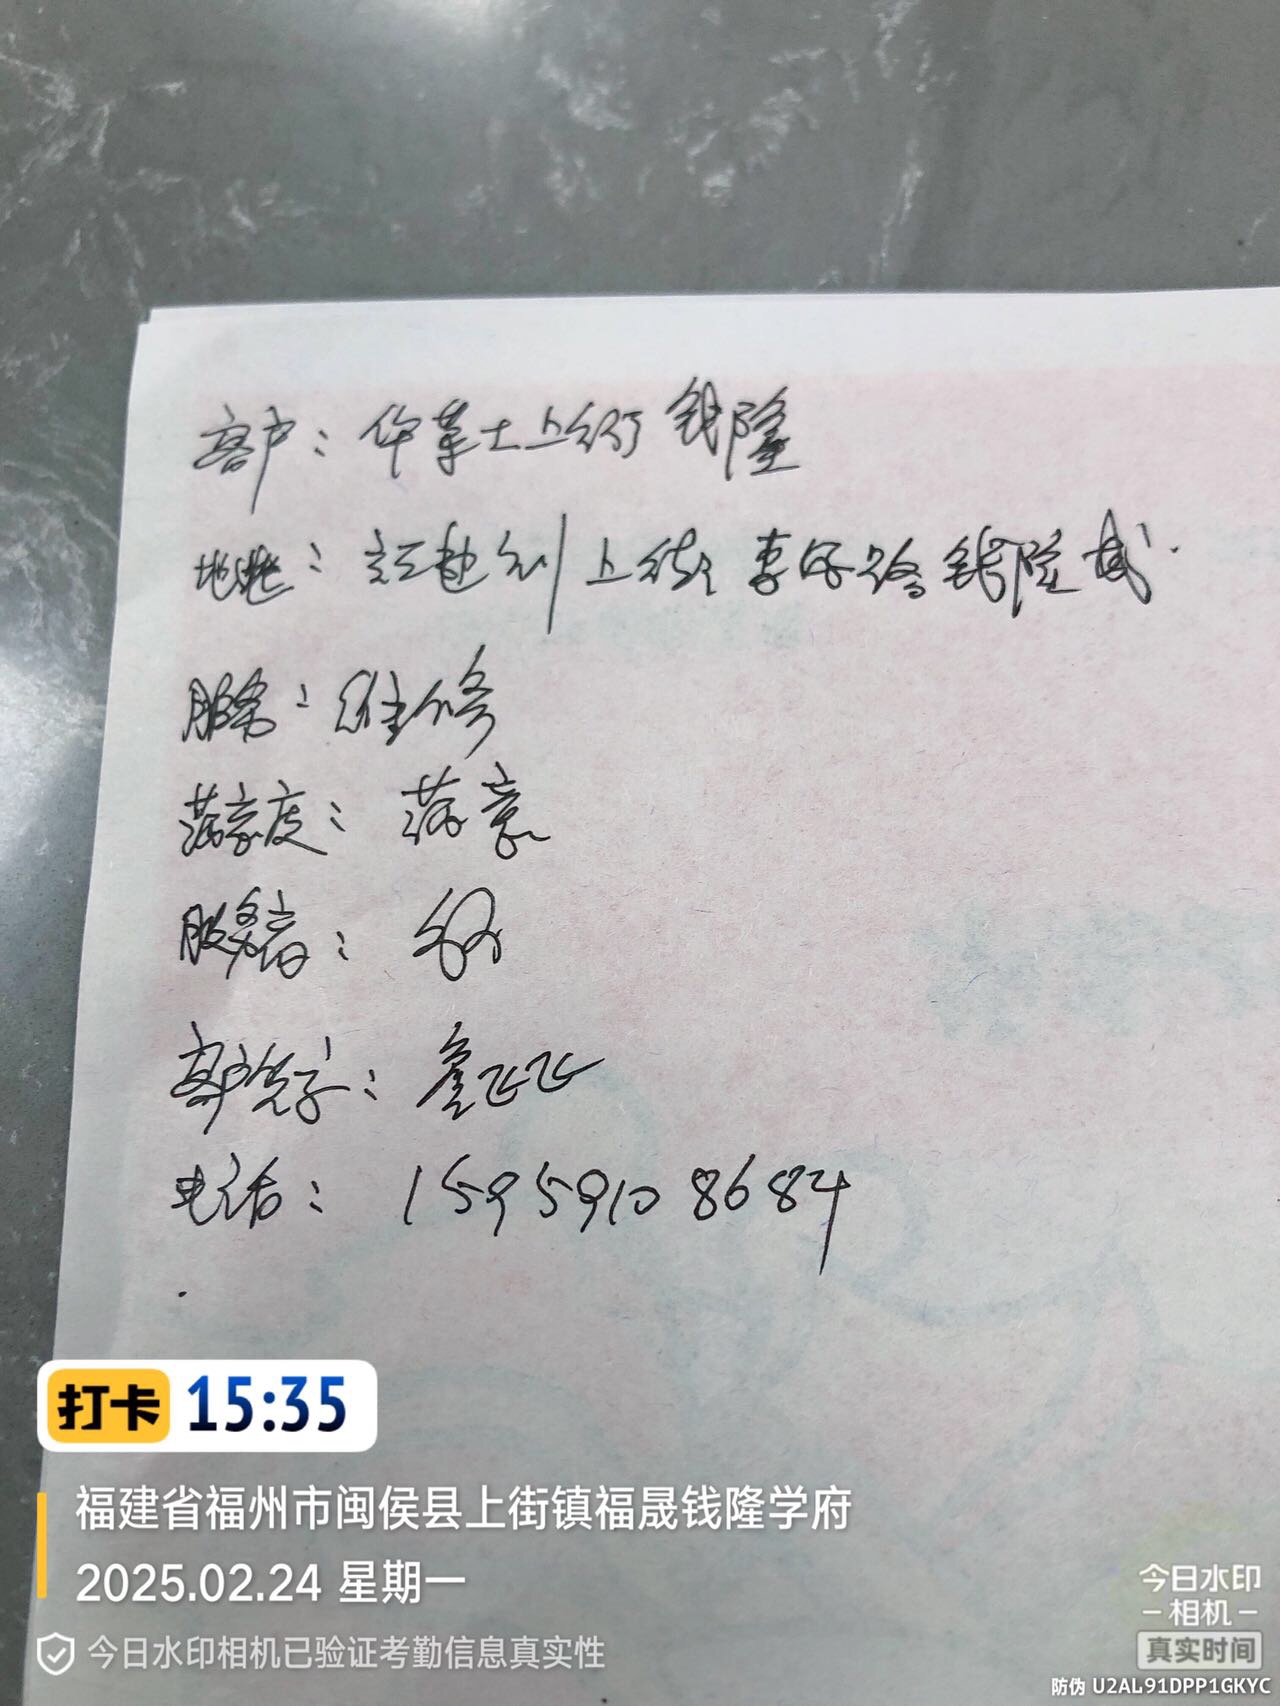 客户：华莱士上街钱隆
地址：上街 钱隆
服务：维修
满意度：满意
服务者：
客户签字：詹飞飞
电话：15959108684
打卡 15:35
福建省福州市闽侯县上街镇福晟钱隆学府
2025.02.24 星期一
今日水印相机已验证考勤信息真实性
今日水印
-相机-
真实时间
防伪 U2AL91DPP1GKYC